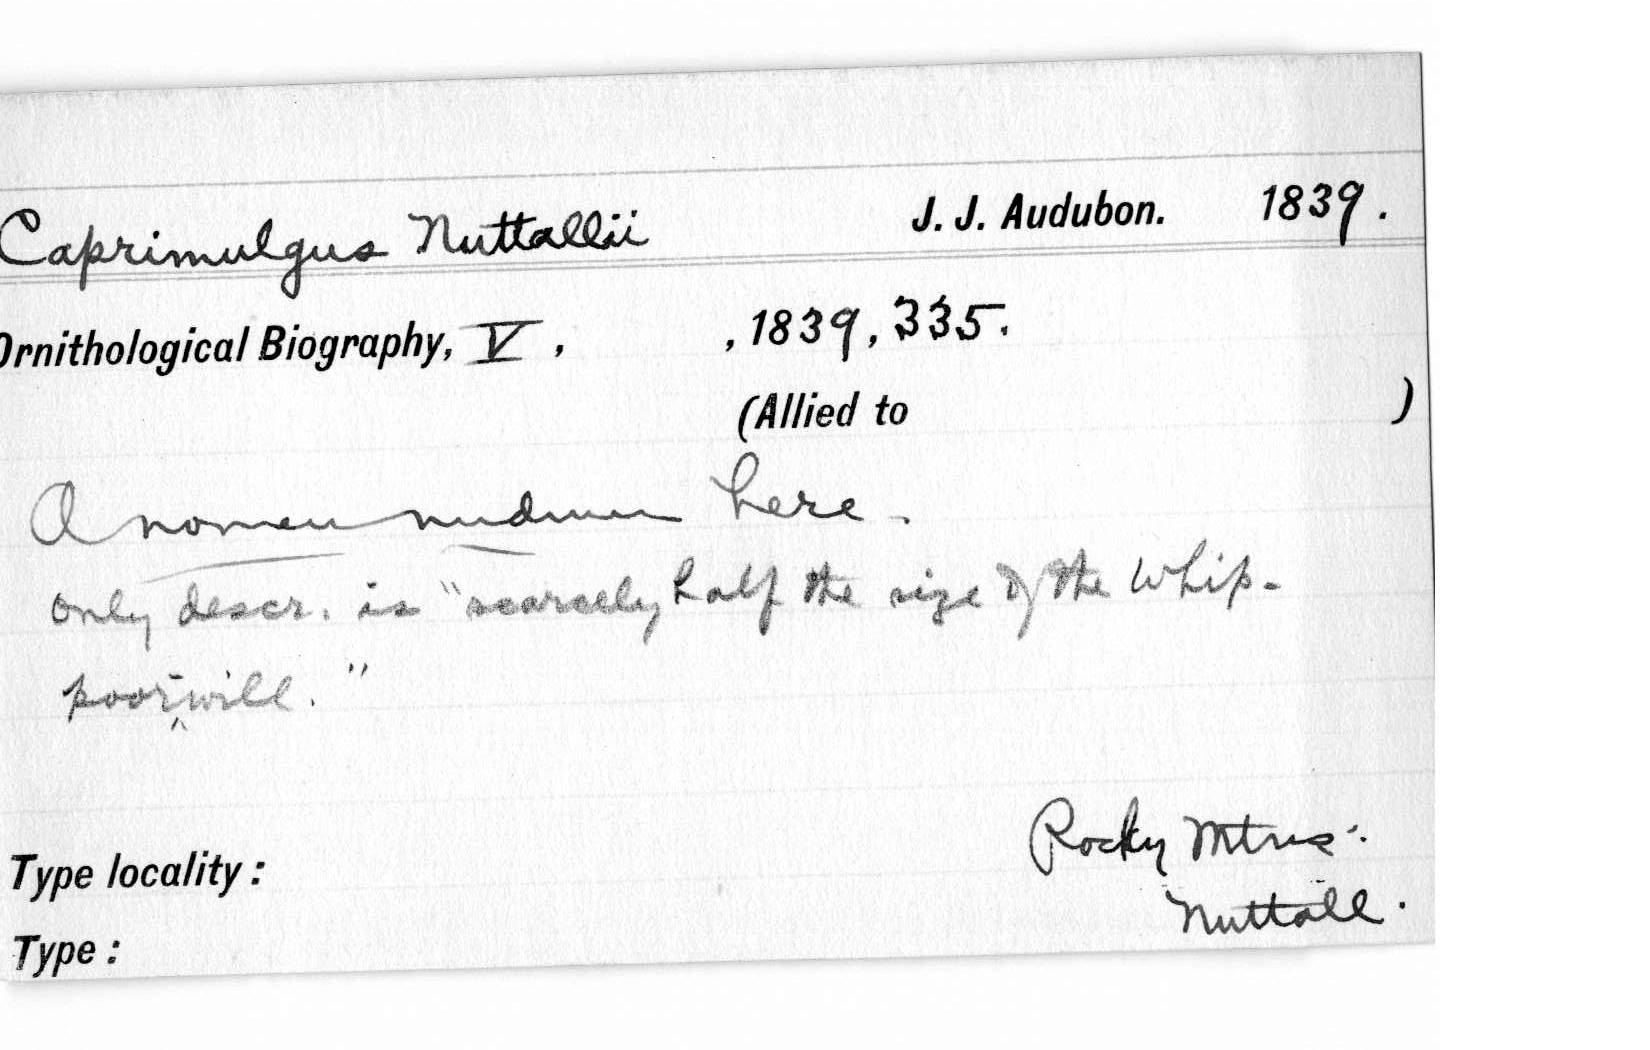 Caprimulgus Nuttallii J. J. Audubon. 1839.
Ornithological Biography, V, , 1839, 335.
(Allied to )
A nomen nudum here.
only descr. is "scarcely half the size of the Whip-
poor-will."
Rocky Mtns.
Type locality:
Nuttall.
Type: